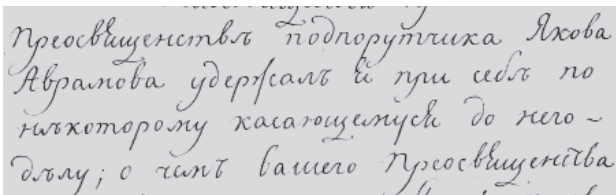 Преосвѣщенствѣ подпорутчика Якова
Аврамова удержалъ я при себѣ по
нѣкоторому касающемуся до него
дѣлу; о чемъ вашего Преосвѣщенства